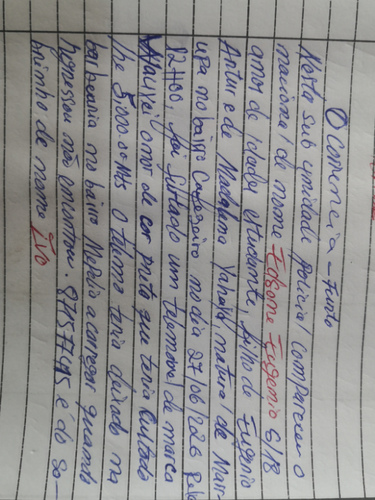 Ocorrencia - Furto
Nesta sub unidade policial compareceu o
nacional de nome Edson Eugenio C/18
anos de idade, estudante, filho de Eugenio
Artur e de Madalena, natural de Mar-
upa no bairro no dia 27/06/226 pelas
12H00, foi furtado um telemovel de marca
Huawei de cor preta que teria custado
lhe 5.000.00Mts O teria deixado na
barbearia no bairro a carregar quando
regressou não encontrou. é do so-
brinho de nome Ivo